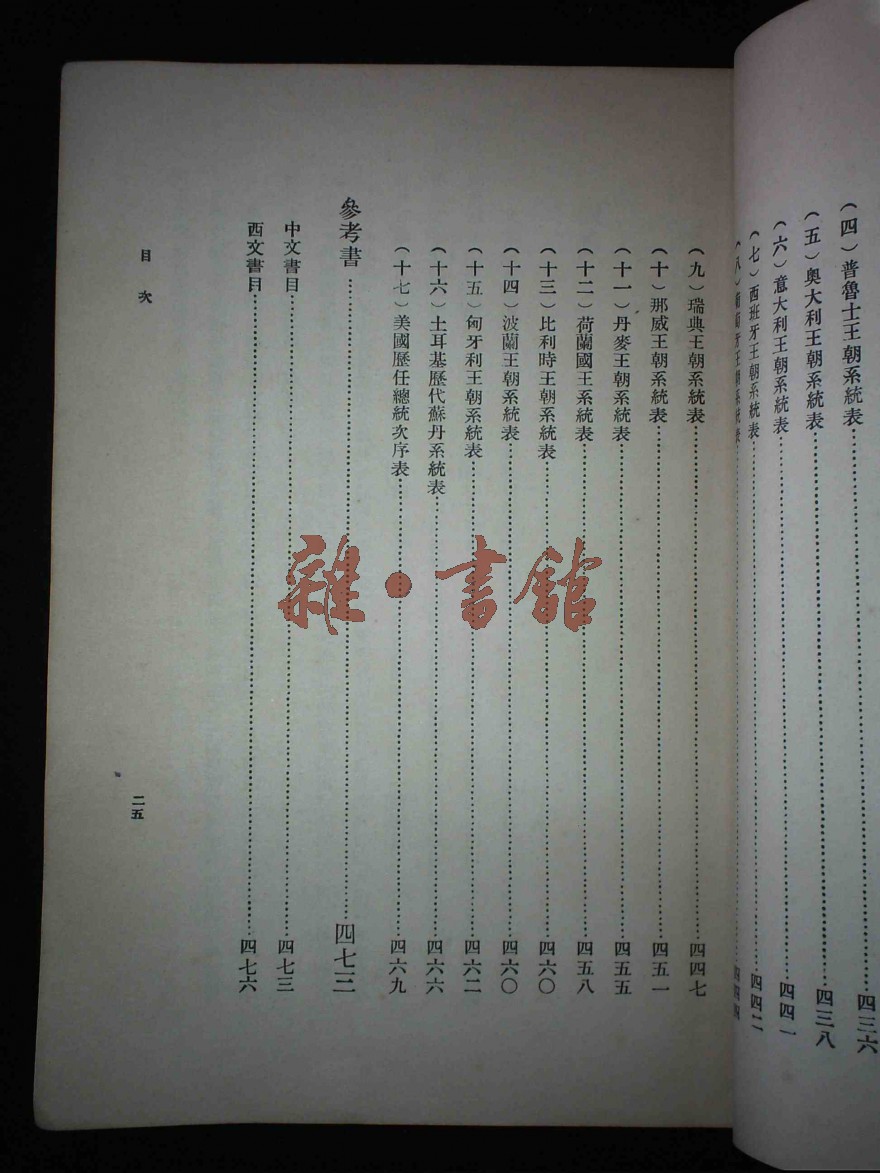 （四）普魯士王朝系統表……四三六
（五）奧大利王朝系統表……四三八
（六）意大利王朝系統表……四四一
（七）西班牙王朝系統表……四四二
（八）葡萄牙王朝系統表……四四四
（九）瑞典王朝系統表……四四七
（十）那威王朝系統表……四五一
（十一）丹麥王朝系統表……四五五
（十二）荷蘭國王系統表……四五八
（十三）比利時王朝系統表……四六〇
（十四）波蘭王朝系統表……四六〇
（十五）匈牙利王朝系統表……四六二
（十六）土耳基歷代蘇丹系統表……四六六
（十七）美國歷任總統次序表……四六九
參考書……四七三
中文書目……四七三
西文書目……四七六
目次
二五
雜·書館